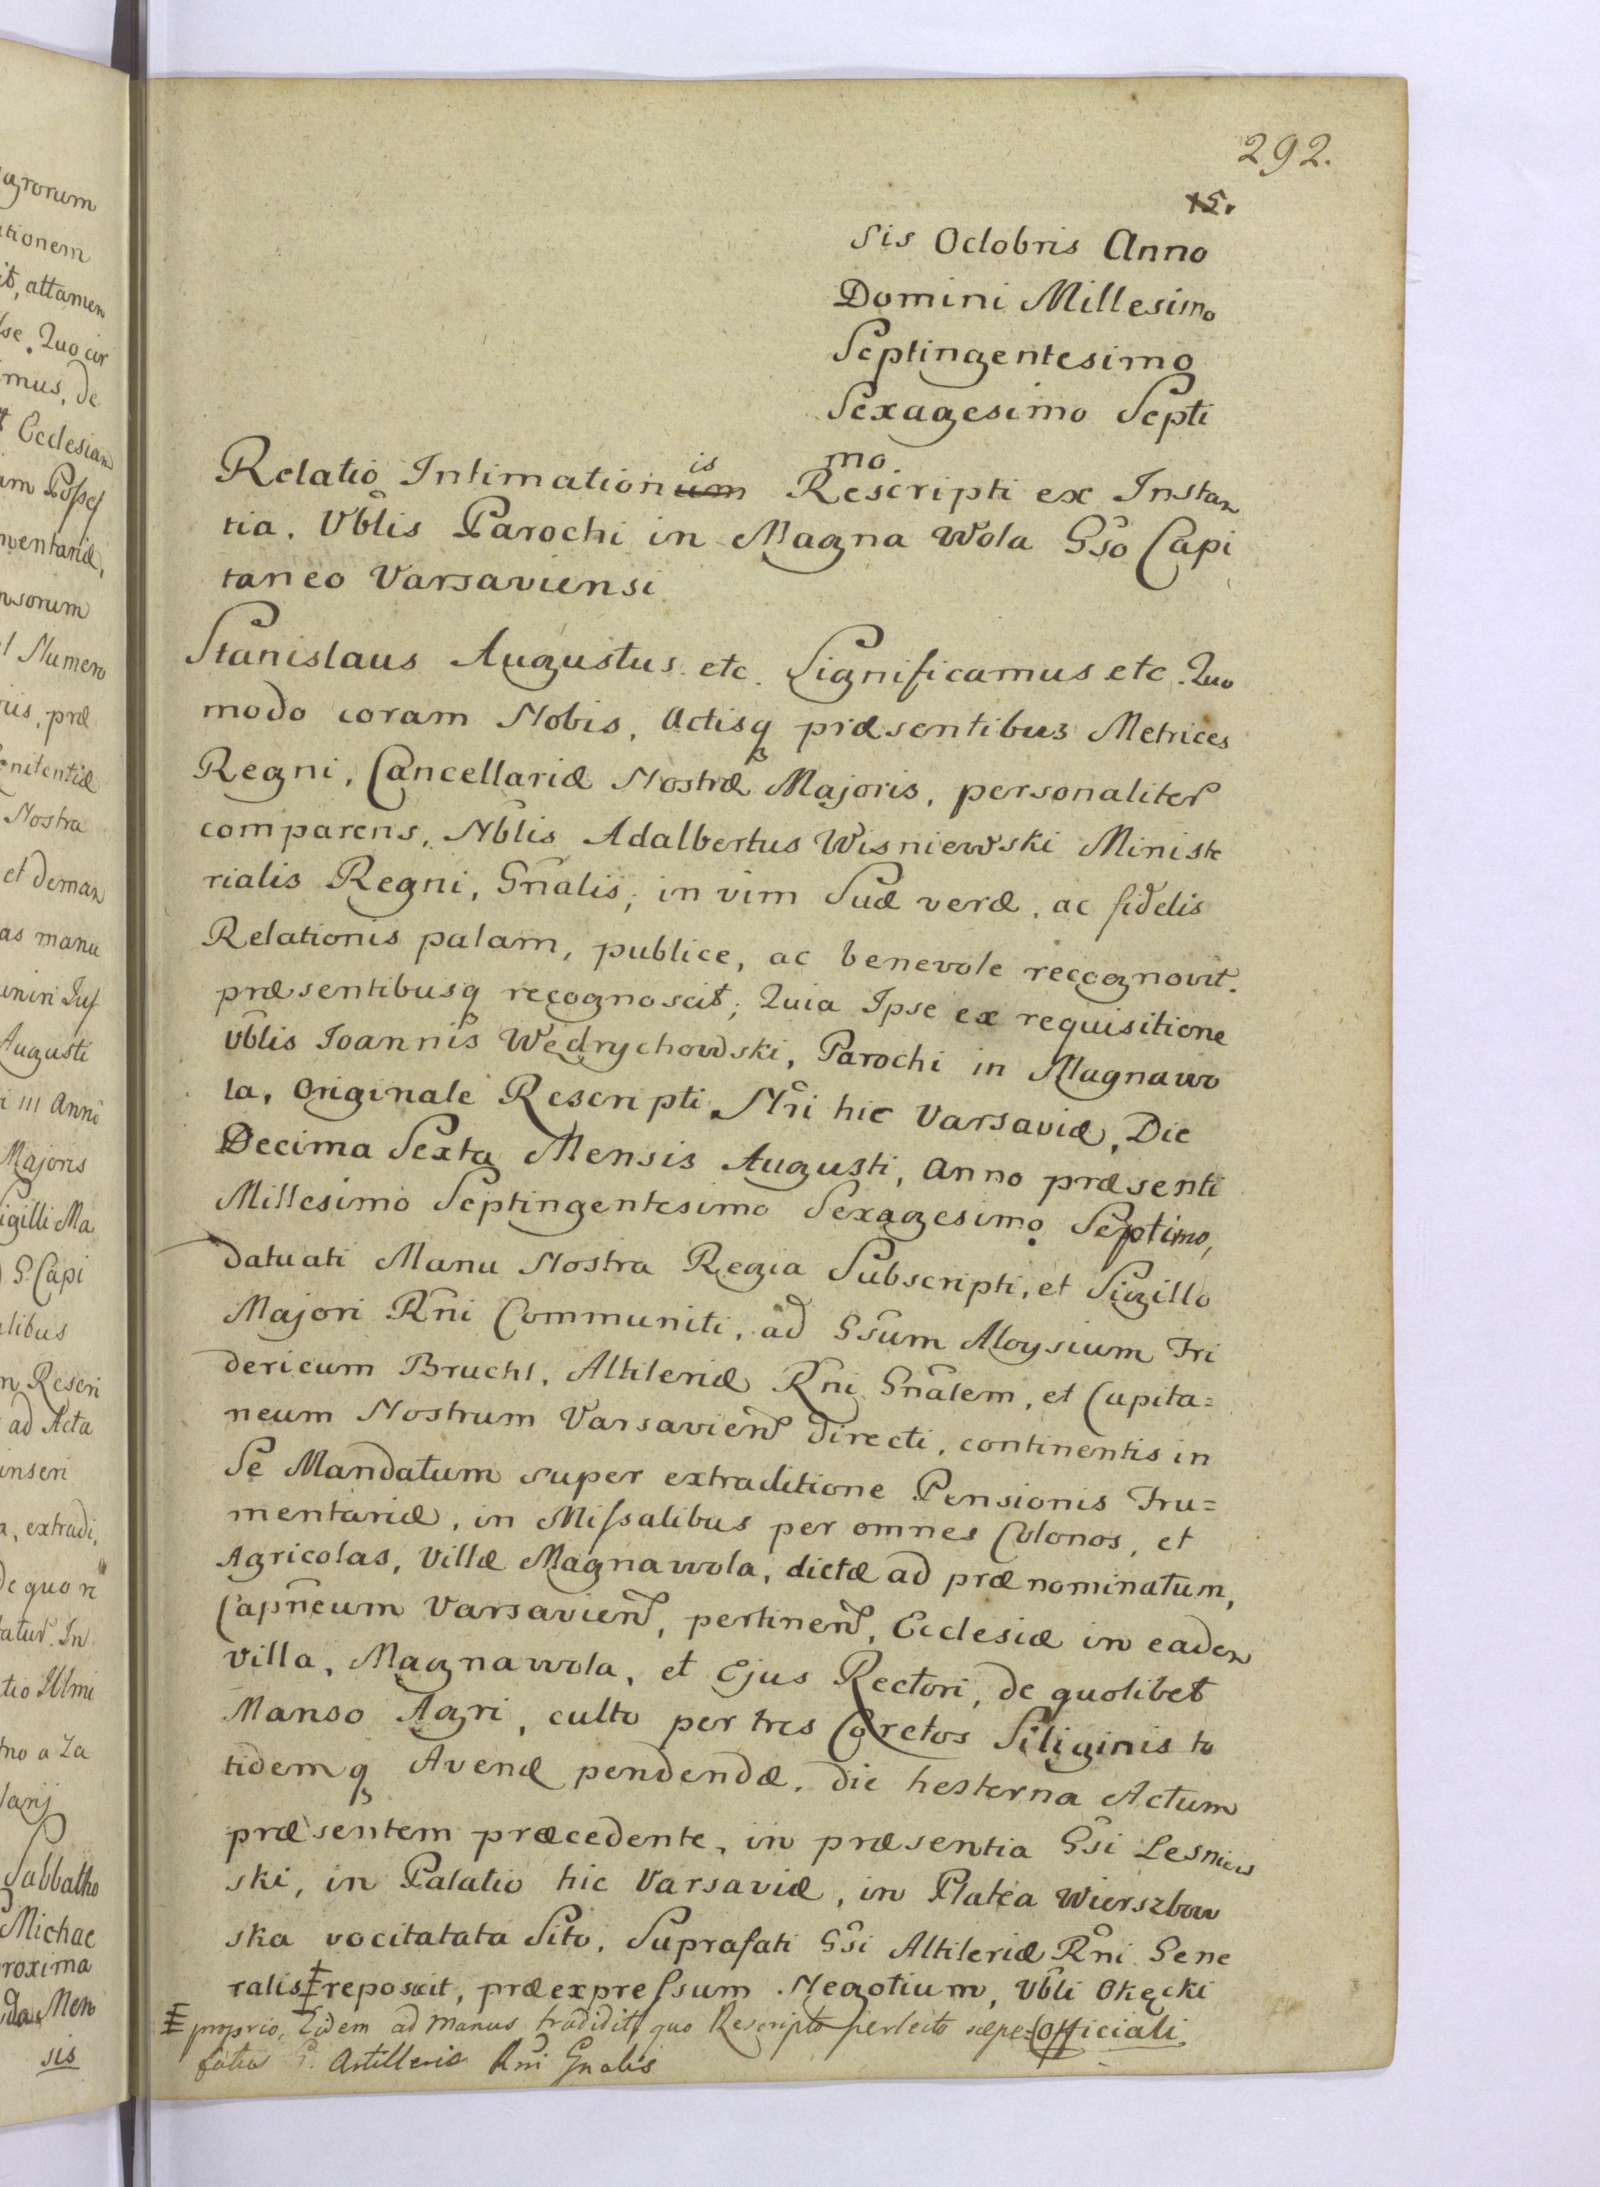 292.
15.
agrorum
tionem
it, attamen
se. Quo cir
mus, de
t Ecclesiam
um Possef
nventariæ,
nsorum
l Numero
riis, præ
enitentiæ
Nostra
et deman
as manu
iniri Juf
Augusti
i III Anno
Majoris
Sigilli Ma
G. Capi
alibus
m Rescri
ad Acta
inseri
a, extradi,
De quo n
atur. In
tio Illmi
no a Za
lanj
Sabbatho
Michae
roxima
da Men
sis
sis Octobris Anno
Domini Millesimo
Septingentesimo
Sexagesimo Septi
mo.
Relatio Intimationis Rescripti ex Instan
tia. Vblis Parochi in Magna Wola Gso Capi
taneo Varsaviensi
Stanislaus Augustus etc. Significamus etc. Quo
modo coram Nobis, Actisq præsentibus Metrices
Regni, Cancellariæ Nostræ Majoris, personaliter
comparens, Nblis Adalbertus Wisniewski Ministe
rialis Regni, Gnalis, in vim Suæ veræ, ac fidelis
Relationis palam, publice, ac benevole recognovit.
præsentibusq recognoscit; Quia Ipse ex requisitione
Vblis Joannis Wędrychowski, Parochi in Magnawo
la, Originale Rescripti Nri hic Varsaviæ, Die
Decima Sexta Mensis Augusti, Anno præsenti
Millesimo Septingentesimo Sexagesimo Septimo,
datuati Manu Nostra Regia Subscripti, et Sigillo
Majori Rni Communiti, ad Gsum Aloysium Fri
dericum Bruchl, Altileriæ Rni Gnalem, et Capita=
neum Nostrum Varsavien directi, continentis in
Se Mandatum super extraditione Pensionis Fru=
mentariæ, in Missalibus per omnes Colonos, et
Agricolas, Villæ Magnawola, dictæ ad prænominatum,
Capneum Varsavien, pertinen, Ecclesiæ in eadem
villa, Magnawola, et Ejus Rectori, de quolibet
Manso Agri, culto per tres Coretos Siliginis to
tidemq Avenæ pendendæ, die hesterna Actum
præsentem præcedente, in præsentia Gsi Lesniew
ski, in Palatio hic Varsaviæ, in Platea Wierszbow
ska vocitatata Sito, Suprafati Gsi Altileriæ Rni Gene
ralis reposuit, præexpressum Negotium, Vbli Okęcki
proprio, Eidem ad manus tradidit, quo Rescripto perlecto sæpe Officiali
fatus G. Artilleriæ Rni Gnalis